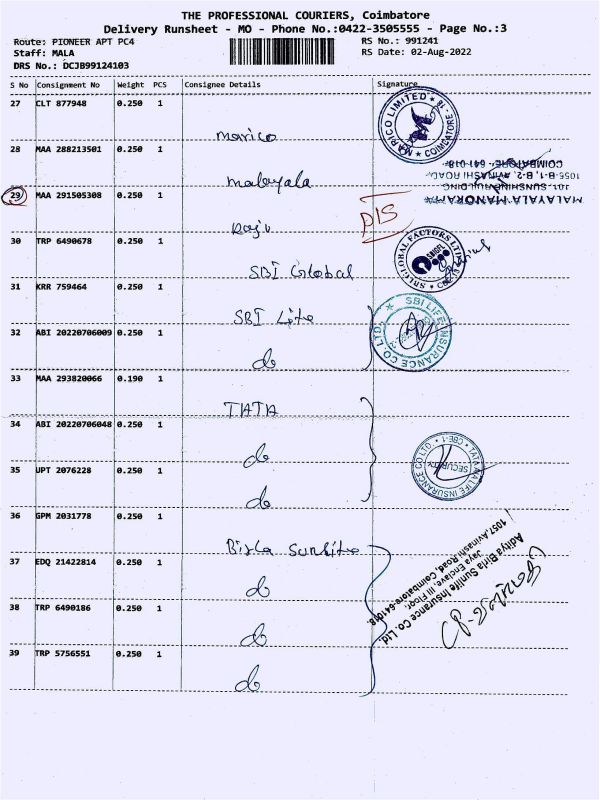 THE PROFESSIONAL COURIERS, Coimbatore
Delivery Runsheet - MO - Phone No.:0422-3505555 - Page No.:3
Route: PIONEER APT PC4 RS No.: 991241
Staff: MALA RS Date: 02-Aug-2022
DRS No.: DCJB99124103
S No Consignment No Weight PCS Consignee Details Signature
27 CLT 877948 0.250 1
Marico
MARICO LIMITED COIMBATORE - 18
28 MAA 288213501 0.250 1
malayala
MALAYALA MANORAMA
101, SUNSHINE BUILDING
1055-B-1, B-2, AVINASHI ROAD,
COIMBATORE - 641 018
29 MAA 291505308 0.250 1
Raju
DIS
30 TRP 6490678 0.250 1
SBI Global
SBI GLOBAL FACTORS LTD
SBIGFL
31 KRR 759464 0.250 1
SBI Life
32 ABI 20220706009 0.250 1
do
SBI LIFE INSURANCE CO LTD.
33 MAA 293820066 0.190 1
TATA
34 ABI 20220706048 0.250 1
do
35 UPT 2076228 0.250 1
do
TATA AIA LIFE INSURANCE CO LTD. CBE-1
SECURITY
36 GPM 2031778 0.250 1
Birla Sunlife
37 EDQ 21422814 0.250 1
do
38 TRP 6490186 0.250 1
do
39 TRP 5756551 0.250 1
do
Aditya Birla Sunlife Insurance Co. Ltd
Jaya Enclave, III Floor,
1057, Avinashi Road, Coimbatore-641018.